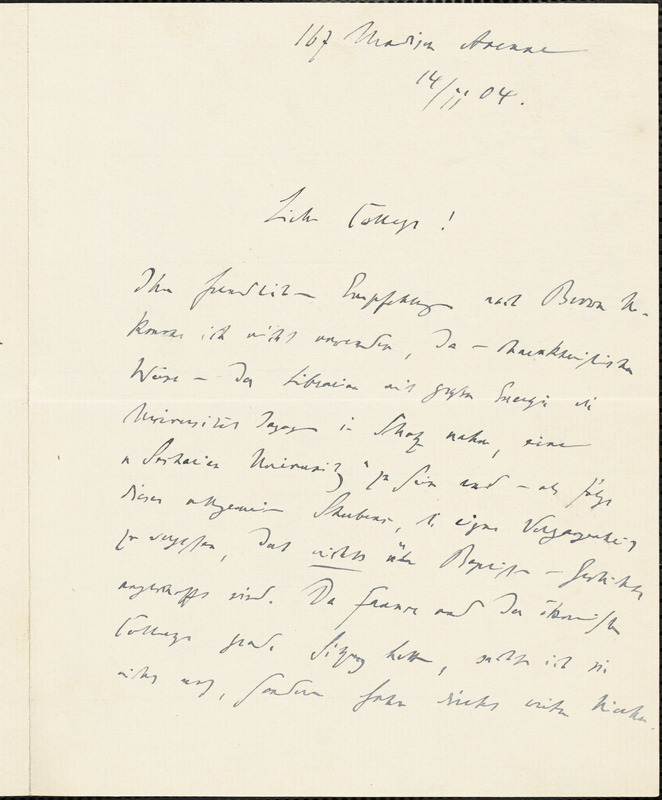 167 Madison Avenue
14/11 04.
Lieber College!
Ihre freundliche Empfehlung nach Brown U-
konnte ich nicht verwenden, da – charakteristischer
Weise – der Librarian mit größter Energie die
Universität dagegen in Schutz nahm, eine
„Sectarian University" zu sein und – als Folge
dieses allgemeinen Strebens, die eigene Vergangenheit
zu vergessen, dort nichts über Baptisten-Geschichte
angeschafft wird. Da ferner auch der
College grade Sitzung hatte, suchte ich sie
nicht auf, sondern fuhr direkt weiter hierher.